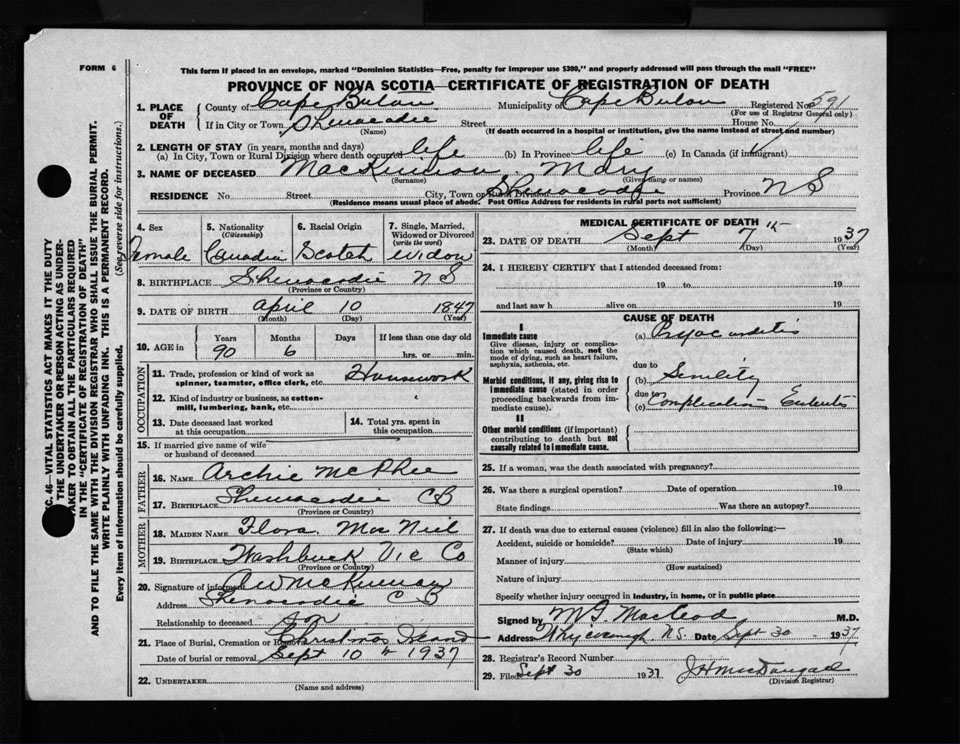 FORM 6
This form if placed in an envelope, marked "Dominion Statistics—Free, penalty for improper use $300," and properly addressed will pass through the mail "FREE"
PROVINCE OF NOVA SCOTIA—CERTIFICATE OF REGISTRATION OF DEATH
1. PLACE OF DEATH
County of Cape Breton Municipality of Cape Breton Registered No. 591
(For use of Registrar General only)
If in City or Town Shenacadie Street House No.
(Name) (If death occurred in a hospital or institution, give the name instead of street and number)
2. LENGTH OF STAY (in years, months and days)
(a) In City, Town or Rural Division where death occurred life (b) In Province life (c) In Canada (if immigrant)
3. NAME OF DECEASED MacKinnon Mary
(Surname) (Given name or names)
RESIDENCE No. Street City, Town or Rural Division Shenacadie Province N S
(Residence means usual place of abode. Post Office Address for residents in rural parts not sufficient)
4. Sex 5. Nationality (Citizenship) 6. Racial Origin 7. Single, Married, Widowed or Divorced (write the word)
Female Canadia Scotch Widow
8. BIRTHPLACE Shenacadie N S
(Province or Country)
9. DATE OF BIRTH April 10 1847
(Month) (Day) (Year)
10. AGE in Years Months Days If less than one day old
90 6 hrs. or min.
OCCUPATION
11. Trade, profession or kind of work as spinner, teamster, office clerk, etc. Housework
12. Kind of industry or business, as cotton-mill, lumbering, bank, etc.
13. Date deceased last worked at this occupation
14. Total yrs. spent in this occupation
15. If married give name of wife or husband of deceased
FATHER
16. NAME Archie McPhee
17. BIRTHPLACE Shenacadie C B
(Province or Country)
MOTHER
18. MAIDEN NAME Flora MacNeil
19. BIRTHPLACE Washbuck Vic Co
(Province or Country)
20. Signature of informant
Address Shenacadie C B
Relationship to deceased son
21. Place of Burial, Cremation or Removal Christmas Island
Date of burial or removal Sept 10th 1937
22. UNDERTAKER
(Name and address)
MEDICAL CERTIFICATE OF DEATH
23. DATE OF DEATH Sept 7th 1937
(Month) (Day) (Year)
24. I HEREBY CERTIFY that I attended deceased from:
19 to 19
and last saw h alive on 19
CAUSE OF DEATH
I
Immediate cause
Give disease, injury or complication which caused death, not the mode of dying, such as heart failure, asphyxia, asthenia, etc.
(a) Myocarditis
due to
Morbid conditions, if any, giving rise to immediate cause (stated in order proceeding backwards from immediate cause).
(b) Senility
due to
(c) Complication Enteritis
II
Other morbid conditions (if important) contributing to death but not causally related to immediate cause.
25. If a woman, was the death associated with pregnancy?
26. Was there a surgical operation? Date of operation 19
State findings Was there an autopsy?
27. If death was due to external causes (violence) fill in also the following:—
Accident, suicide or homicide? Date of injury 19
(State which)
Manner of injury
(How sustained)
Nature of injury
Specify whether injury occurred in industry, in home, or in public place
Signed by M G MacLeod M.D.
Address Whycocomagh N.S. Date Sept 30 1937
28. Registrar's Record Number
29. Filed Sept 30 1937 J H MacDougall
(Division Registrar)
SEC. 46—VITAL STATISTICS ACT MAKES IT THE DUTY
OF THE UNDERTAKER OR PERSON ACTING AS UNDER-
TAKER TO OBTAIN ALL THE PARTICULARS REQUIRED
IN THE "CERTIFICATE OF REGISTRATION OF DEATH"
AND TO FILE THE SAME WITH THE DIVISION REGISTRAR WHO SHALL ISSUE THE BURIAL PERMIT.
WRITE PLAINLY WITH UNFADING INK. THIS IS A PERMANENT RECORD.
Every item of information should be carefully supplied. (See reverse side for instructions.)